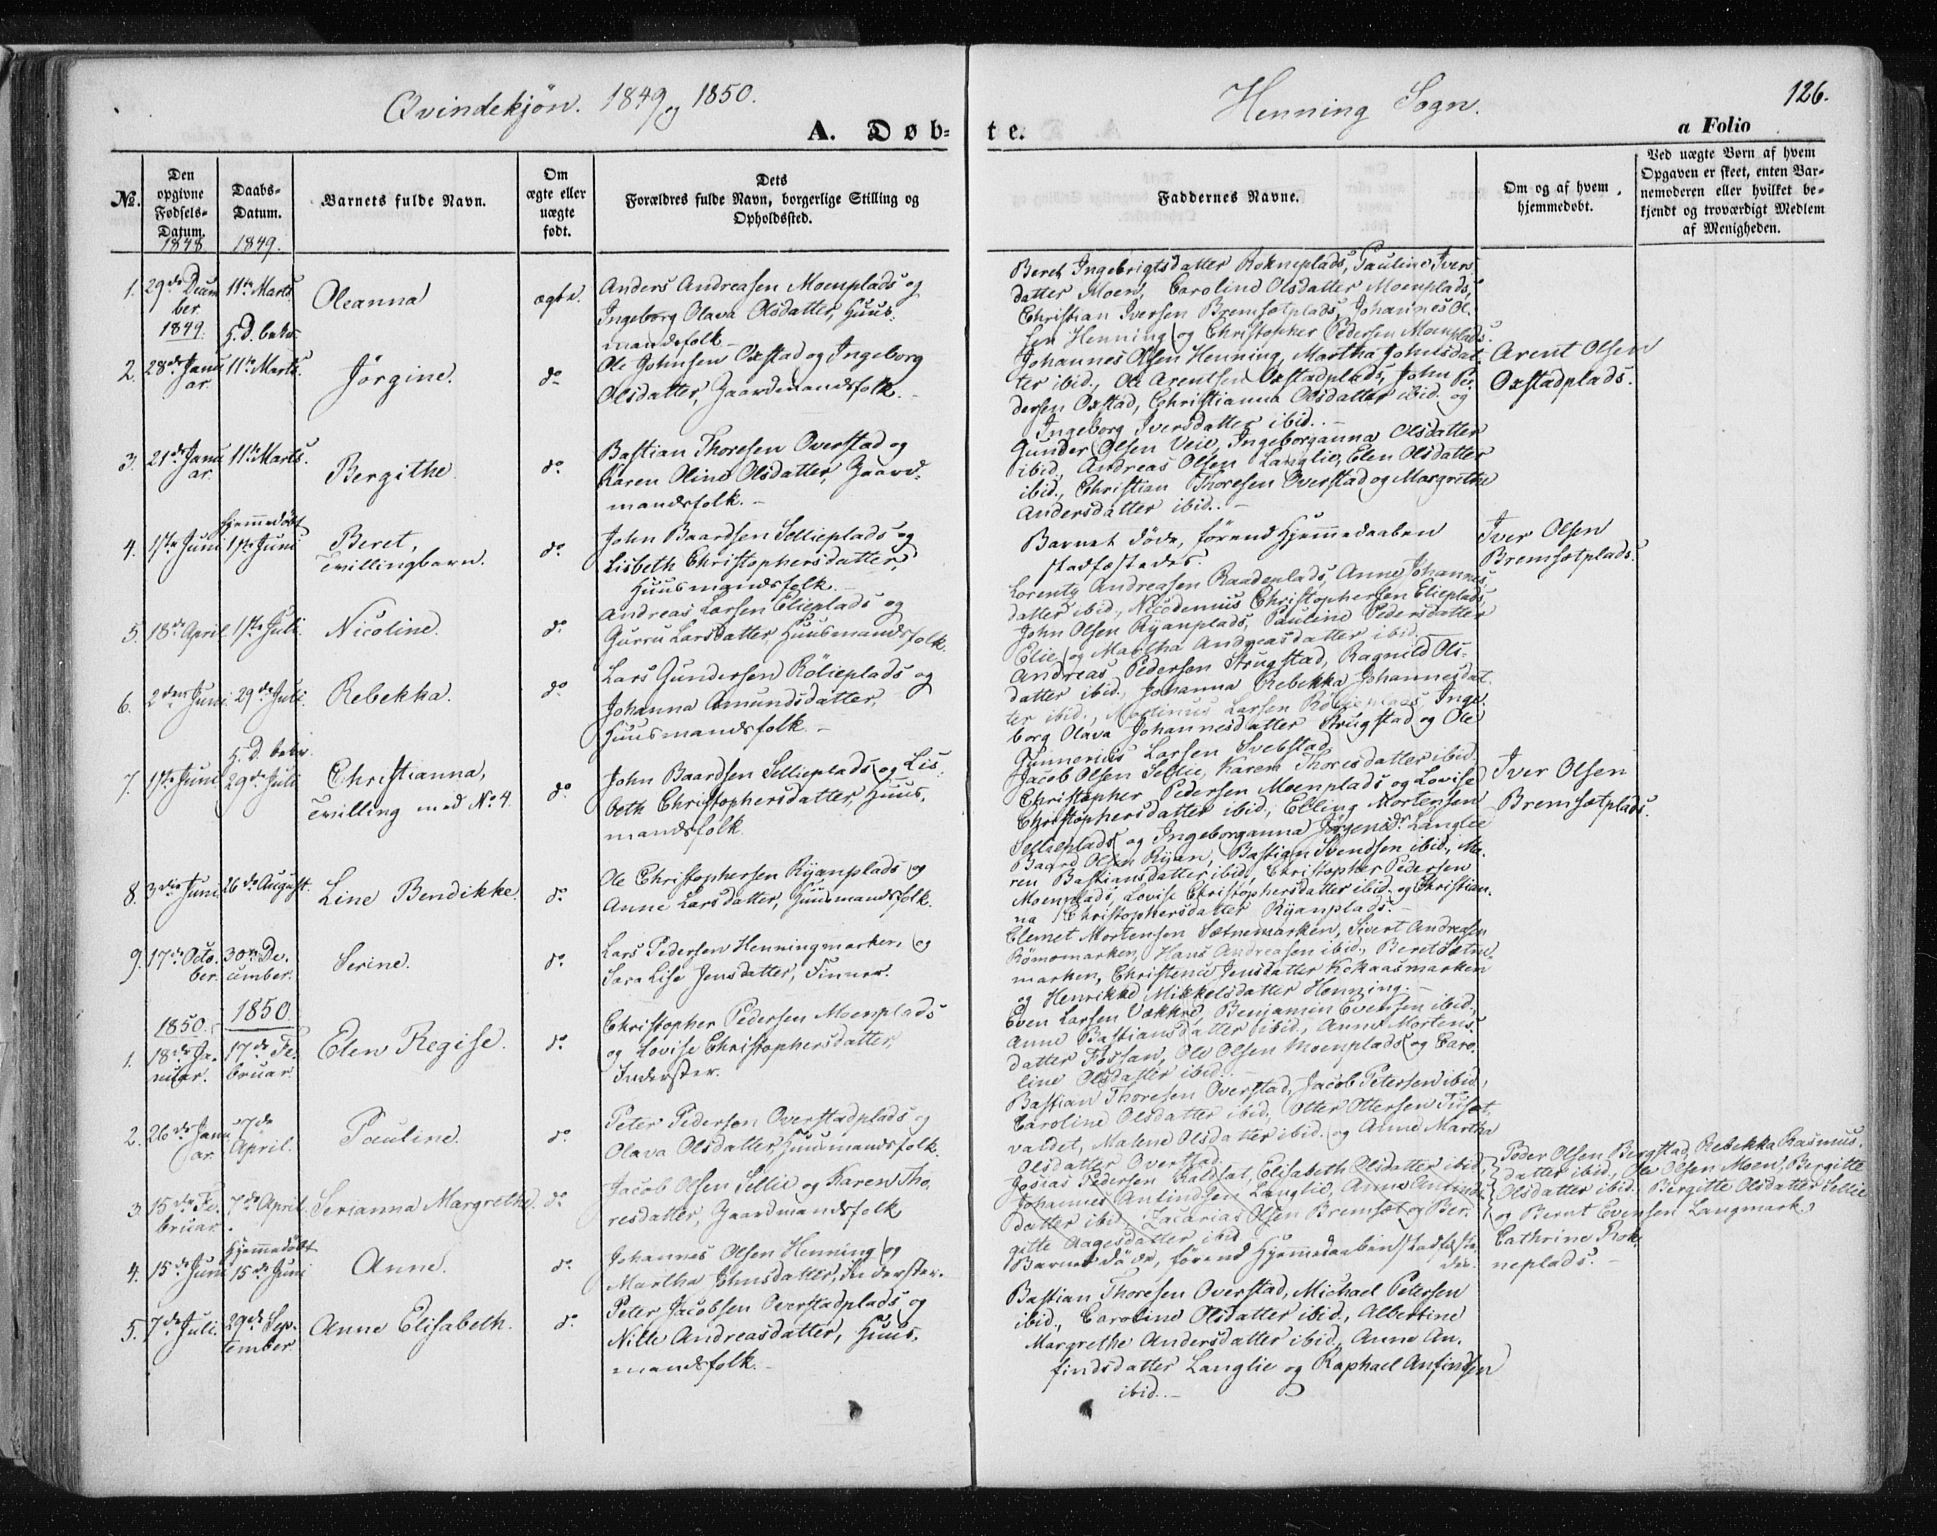 Qvindekjøn. 1849 og 1850.
Henning Sogn.
126.
A. Døb-
te.
a Folio
No.
Den opgivne Fødsels-Datum.
Daabs-Datum.
Barnets fulde Navn.
Om ægte eller uægte født.
Dets Forældres fulde Navn, borgerlige Stilling og Opholdssted.
Faddernes Navne.
Om og af hvem hjemmedøbt.
Ved uægte Børn af hvem Opgaven er skeet, enten Barnemoderen eller hvilket bekjendt og troværdigt Medlem af Menigheden.
1848. 1849.
1. 29de Decem
ber.
11te Marts
Oleanna
ægte.
Anders Andreasen Moenplads og
Ingeborg Olava Olsdatter, Huus-
mandsfolk –
Beret Ingebrigtsdatter Rokneplads, Pauline Ivers
datter Moen, Caroline Olsdatter Moenplads,
Christian Iversen Bremsetplads, Johannes Ol-
sen Henning og Christopher Pedersen Moenplads.
1849. H. D. bekr.
2. 28de Janu
ar.
11te Marts.
Jørgine.
do
Ole Johnsen Oxstad og Ingeborg
Olsdatter, Gaardmandsfolk. –
Johannes Olsen Henning, Martha Johnsdat-
ter ibid., Ole Arentsen Oxstadplads, John Pe-
dersen Oxstad, Christianna Olsdatter ibid. og
Ingeborg Iversdatter ibid. –
Arent Olsen
Oxstadplads.
3. 21de Janu
ar.
11te Marts.
Bergithe
do
Bastian Thoresen Overstad og
Karen Oline Olsdatter, Gaard-
mandsfolk. –
Gunder Olsen Veie, Ingeborganna Olsdatter
ibid., Andreas Olsen Langlie, Elen Olsdatter
ibid., Christian Thoresen Overstad og Margrethe
Andersdatter ibid. –
4. 1ste Juni
Hjemmedøbt
1ste Juni
Beret,
Tvillingbarn.
do
John Baardsen Sellieplads og
Lisbeth Christophersdatter,
Huusmandsfolk. –
Barnet døde, førend Hjemmedaaben
stadfæstedes.
Iver Olsen
Bremsetplads.
5. 18de April.
1ste Juli.
Nicoline.
do
Andreas Larsen Elieplads og
Gurru Larsdatter, Huusmandsfolk.
Lorentz Andreasen Raadeplads, Anne Johannes-
datter ibid., Nicodemus Christophersen Elieplads
John Olsen Ryanplads, Pauline Pedersdatter
Elie og Martha Andreasdatter ibid. –
6. 2den Juni.
29de Juli.
Rebekka.
do
Lars Gundersen Rölieplads og
Johanna Amundsdatter,
Huusmandsfolk. –
Andreas Pedersen Strugstad, Ragnild Ols-
datter ibid., Johanna Rebekka Johannesdat-
ter ibid., Martinus Larsen Rölieplads, Inge-
borg Olava Johannesdatter Strugstad og Ole
Gunnerius Larsen Svebstad
7. 1ste Juni
H. D. bekr.
29de Juli
Christianna,
Tvilling med No 4.
do
John Baardsen Sellieplads og Lis-
beth Christophersdatter, Huus-
mandsfolk.
Jacob Olsen Sellie, Karen Thoresdatter ibid.
Christopher Pedersen Moenplads og Lovise
Christophersdatter ibid., Elling Mortensen
Sellieplads og Ingeborganna Jörgensdr Langlie
Iver Olsen
Bremsetplads.
8. 3die Juni
26de August.
Line Bendikke.
do
Ole Christophersen Ryanplads og
Anne Larsdatter, Huusmandsfolk.
Baard Olsen Ryan, Bastian Svendsen ibid., Ma-
ren Bastiansdatter ibid., Christopher Pedersen
Moenplads, Lovise Christophersdatter ibid. og Christian-
na Christophersdatter Ryanplads. –
9. 17de Octo-
ber.
30te De-
cember.
Serine.
do
Lars Pedersen Henningmarken og
Sara Lise Jensdatter, Finner.
Clemet Mortensen Sætnemarken, Sivert Andreasen
Römomarken, Hans Andreasen ibid., Beret Sætne-
marken, Christence Jensdatter Kokaasmarken
og Henrikke Mikkelsdatter Henning. –
1850. 1850.
1. 18de Ja-
nuar.
17de Fe-
bruar.
Elen Regise.
do
Christopher Pedersen Moenplads
og Lovise Christophersdatter
Inderster.
Even Larsen Vække, Benjamin Evensen ibid.,
Anne Bastiansdatter ibid., Anne Mortens-
datter Fossan, Ole Olsen Moenplads og Caro-
line Olsdatter ibid. –
2. 26de Janu
ar.
7de
April.
Pauline.
do
Peter Pedersen Overstadplads og
Olava Olsdatter, Huusmandsfolk.
Bastian Thoresen Overstad, Jacob Petersen ibid.,
Caroline Olsdatter ibid., Otter Ottersen Tuset-
valdet, Malene Olsdatter ibid. og Anne Martha
Olsdatter Overstad.
3. 15de Fe-
bruar
7de April.
Serianna Margrethe.
do
Jacob Olsen Sellie og Karen Tho-
resdatter, Gaardmandsfolk
Josias Pedersen Kaldsat, Elisabeth Olsdatter ibid.,
Johannes Anfindsen Langlie, Anne Anfinds-
datter ibid., Zacarias Olsen Bremset og Ber-
gitte Aagesdatter ibid
Peder Olsen Bergstad, Rebekka Rasmus-
datter ibid., Ole Olsen Moen, Bergitte
Olsdatter ibid., Bergitte Olsdatter Sellie
og Bernt Evensen Langmark.
4. 15de Juni
Hjemmedøbt
15de Juni
Anne.
do
Johannes Olsen Henning og
Martha Johnsdatter, Inderster.
Barnet døde, førend Hjemmedaaben stadfæste-
des.
Cathrine Rok-
neplads. –
5. 7de Juli.
29de Sep-
tember
Anne Elisabeth.
do
Peter Jacobsen Overstadplads og
Nille Andreasdatter, Huus-
mandsfolk. –
Bastian Thoresen Overstad, Michael Petersen
ibid., Caroline Olsdatter ibid., Albertine
Margrethe Andersdatter ibid., Anne An-
findsdatter Langlie og Raphael Anfindsen
ibid. –